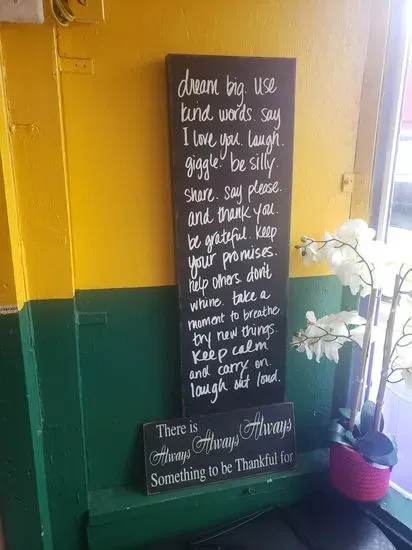 dream big. use
kind words. say
I love you. laugh.
giggle. be silly.
share. say please.
and thank you.
be grateful. keep
your promises.
help others. don't
whine. take a
moment to breathe
try new things.
keep calm
and carry on.
laugh out loud.
There is
Always Always Always
Something to be Thankful for